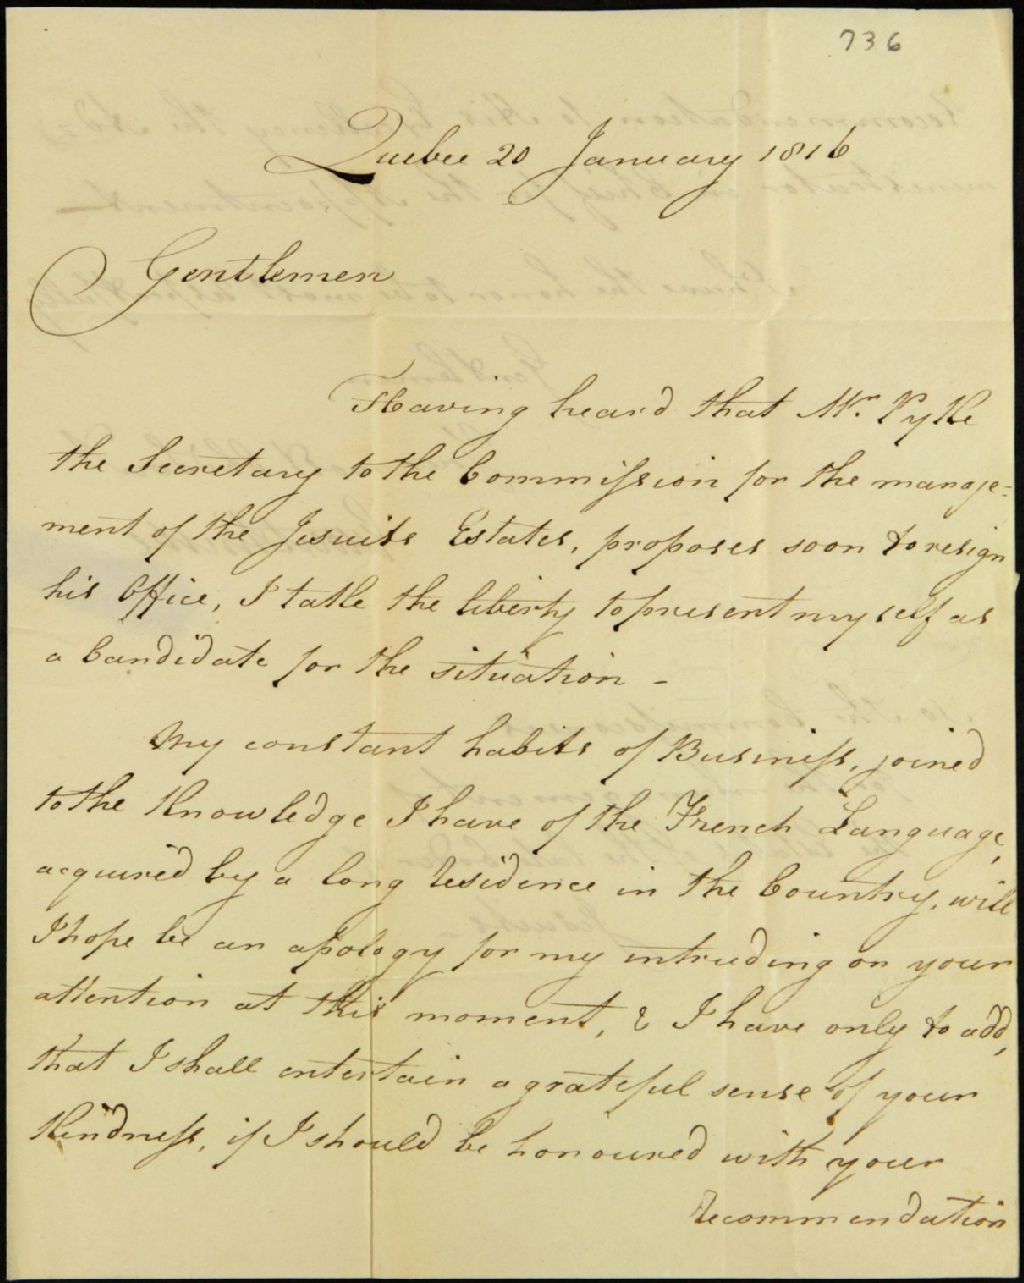 736
Quebec 20 January 1816
Gentlemen
Having heard that Mr. Pyke
the Secretary to the Commission for the manage=
ment of the Jesuits Estates, proposes soon to resign
his Office, I take the liberty to present myself as
a Candidate for the situation -
My constant habits of Business, joined
to the Knowledge I have of the French Language,
acquired by a long residence in the Country, will
I hope be an apology for my intruding on your
attention at this moment, & I have only to add,
that I shall entertain a grateful sense of your
Kindness, if I should be honoured with your
Recommendation